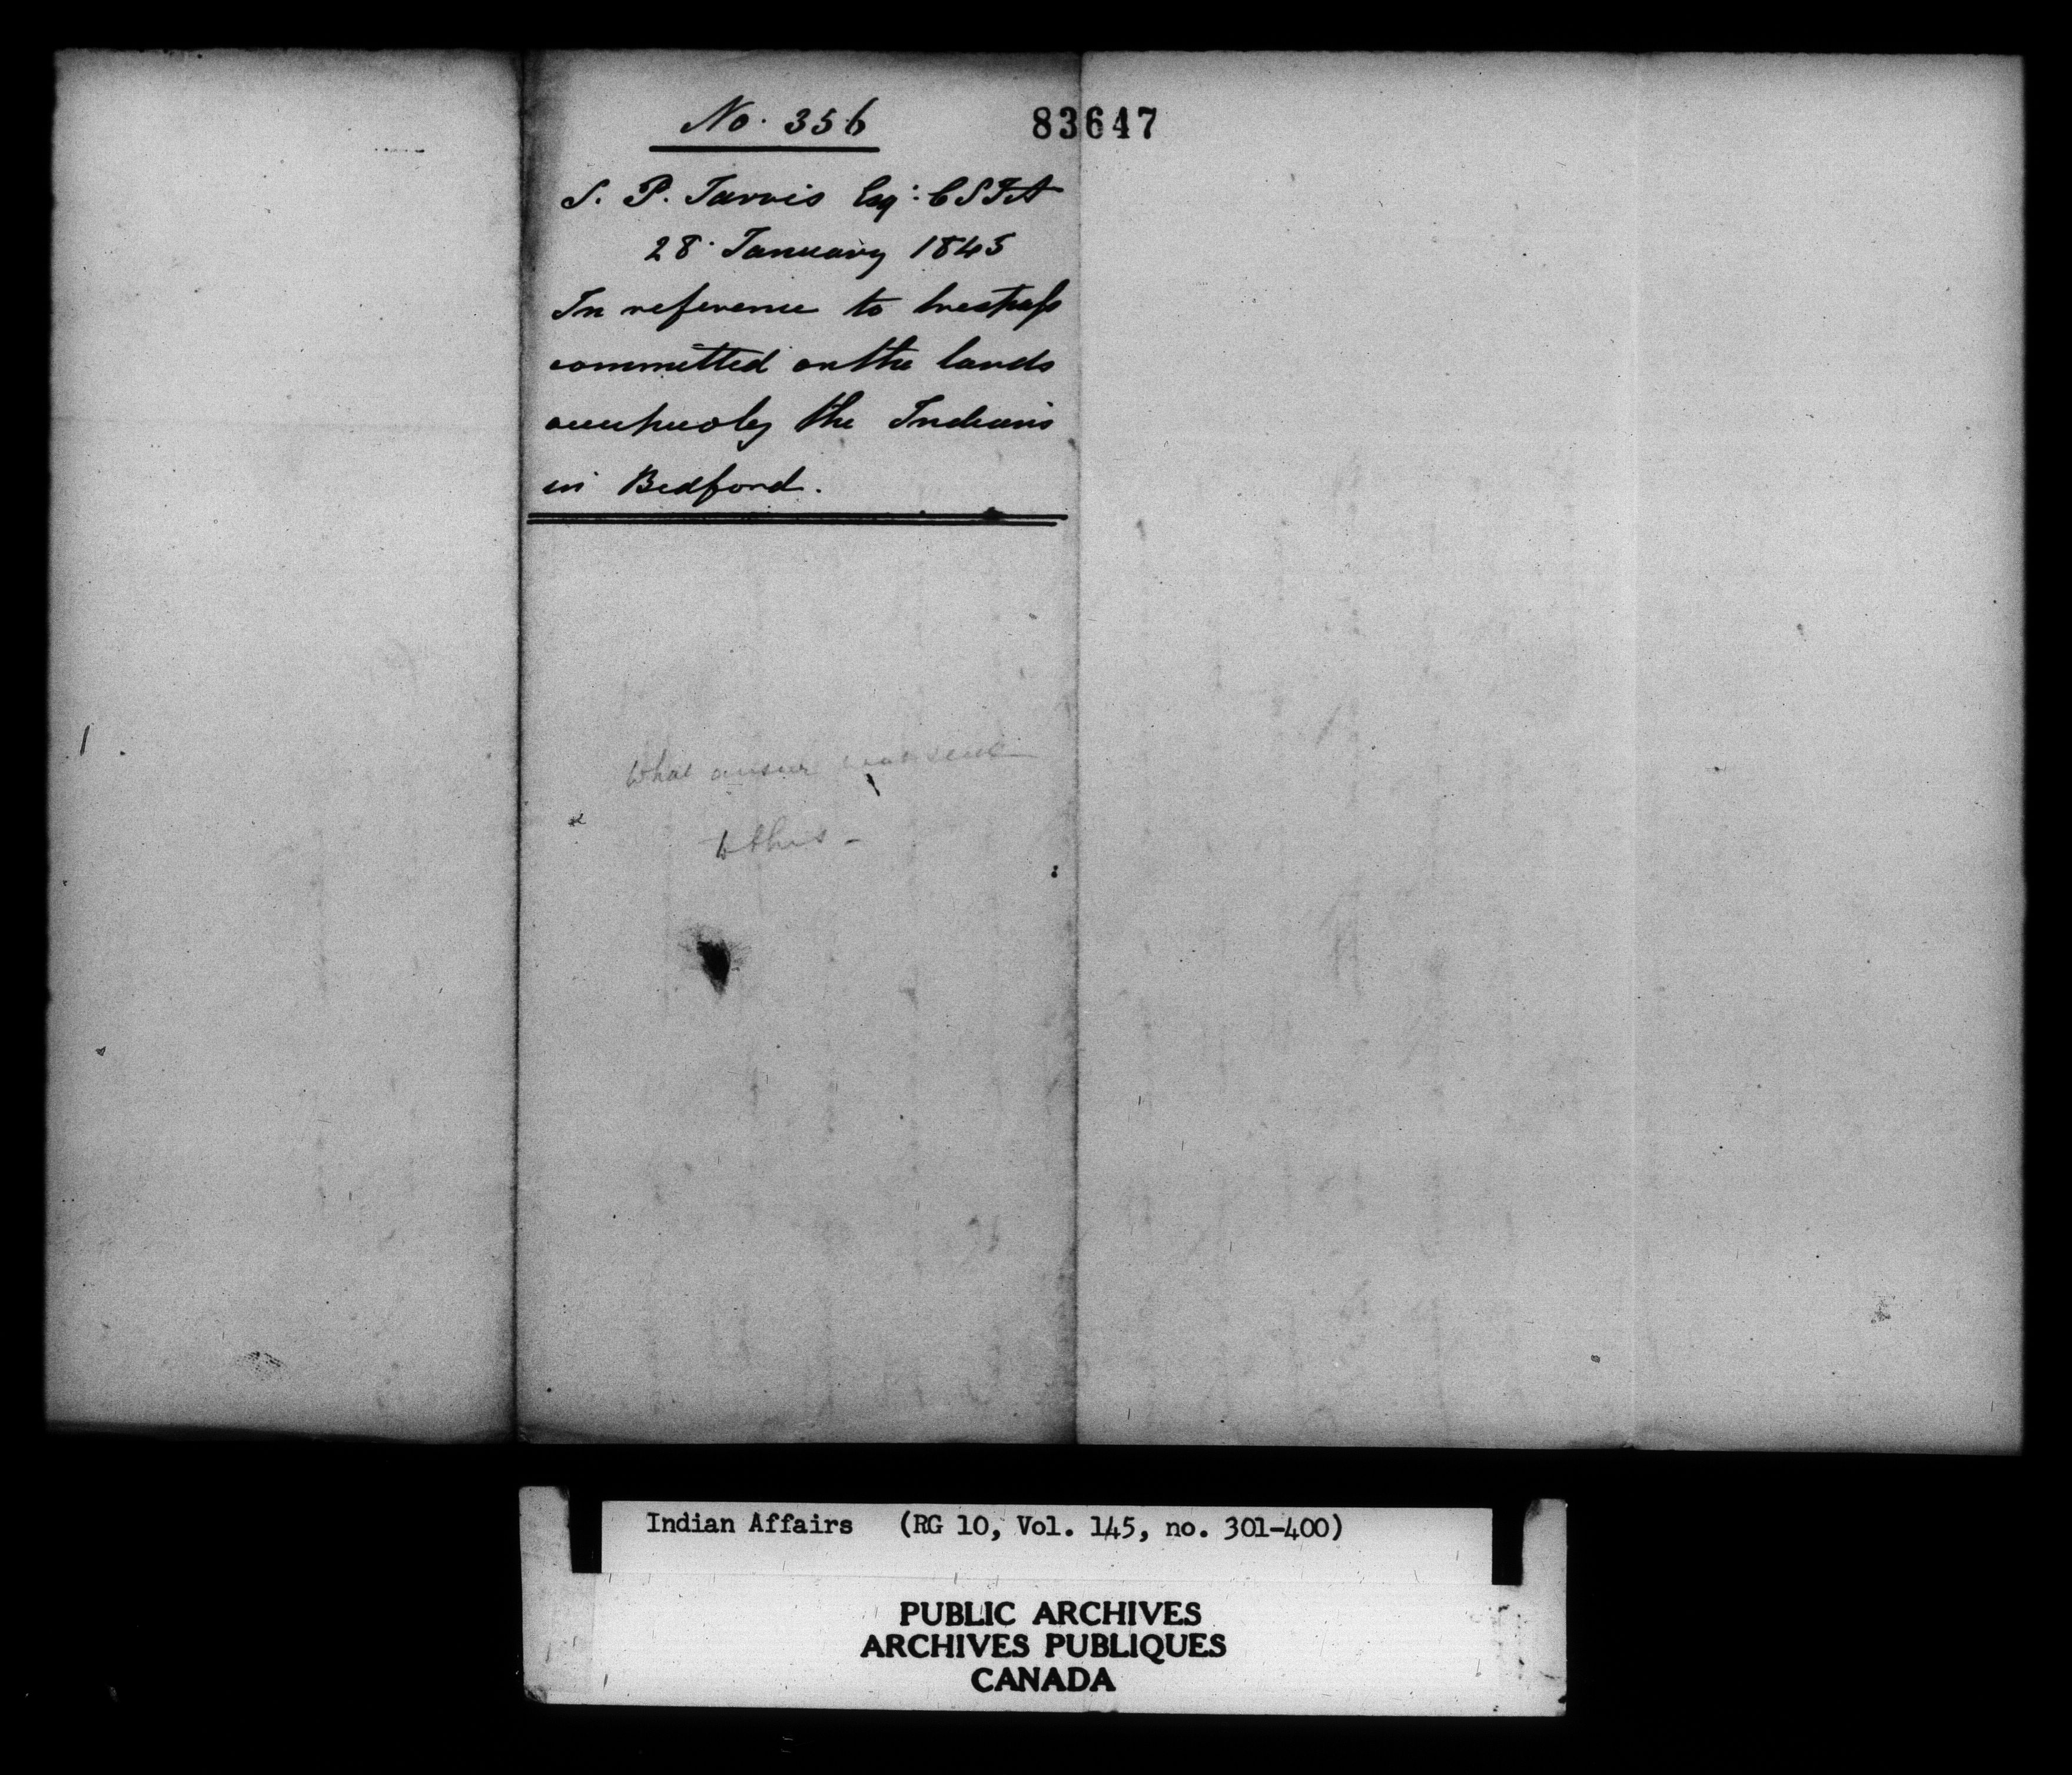 No. 356
83647
S. P. Jarvis Esq: CSIA
28 January 1845
In reference to trespass
committed on the lands
occupied by the Indians
in Bedford.
What answer was sent
to this –
Indian Affairs (RG 10, Vol. 145, no. 301-400)
PUBLIC ARCHIVES
ARCHIVES PUBLIQUES
CANADA